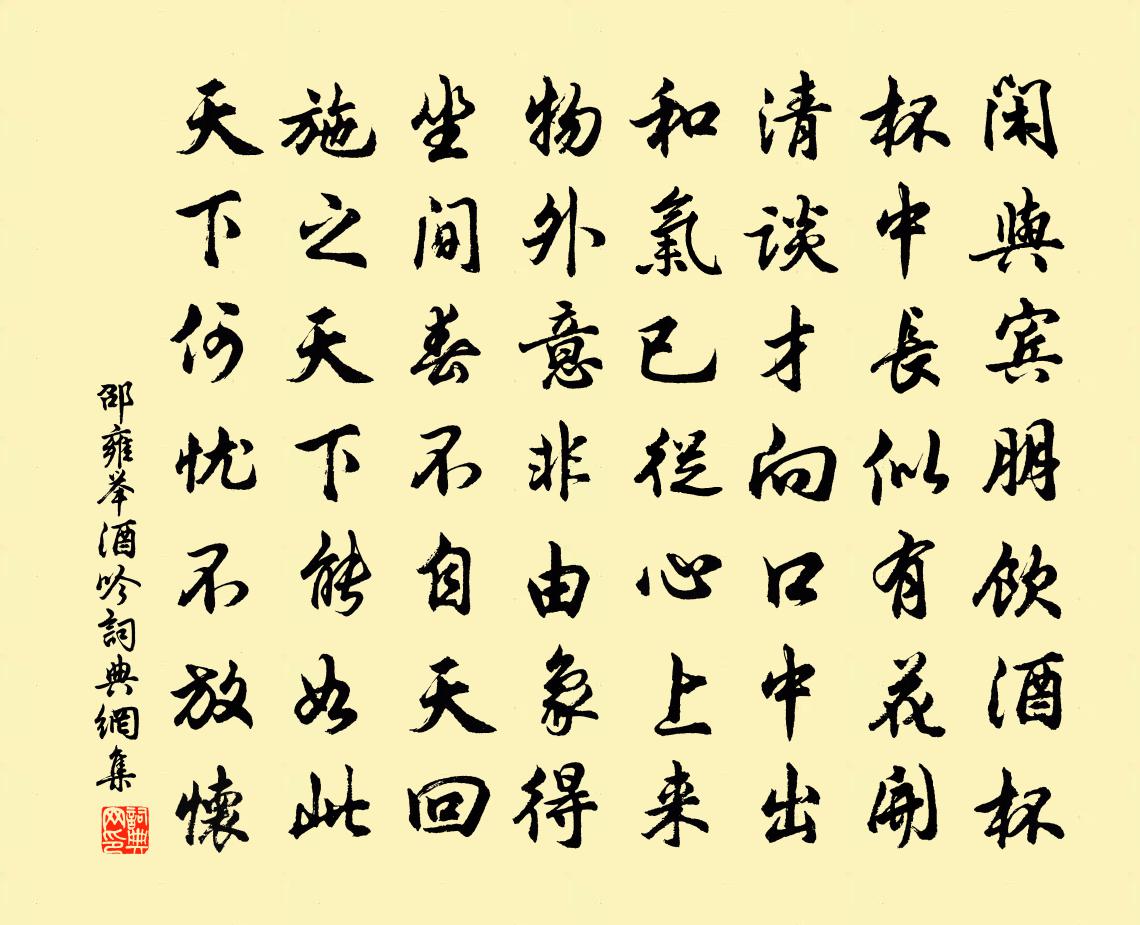 闲與宾朋饮酒杯
杯中長似有花開
清談才向口中出
和氣已從心上来
物外意非由象得
坐間春不自天回
施之天下能如此
天下何忧不放懷
邵雍举酒吟詞典網集
詞典网印